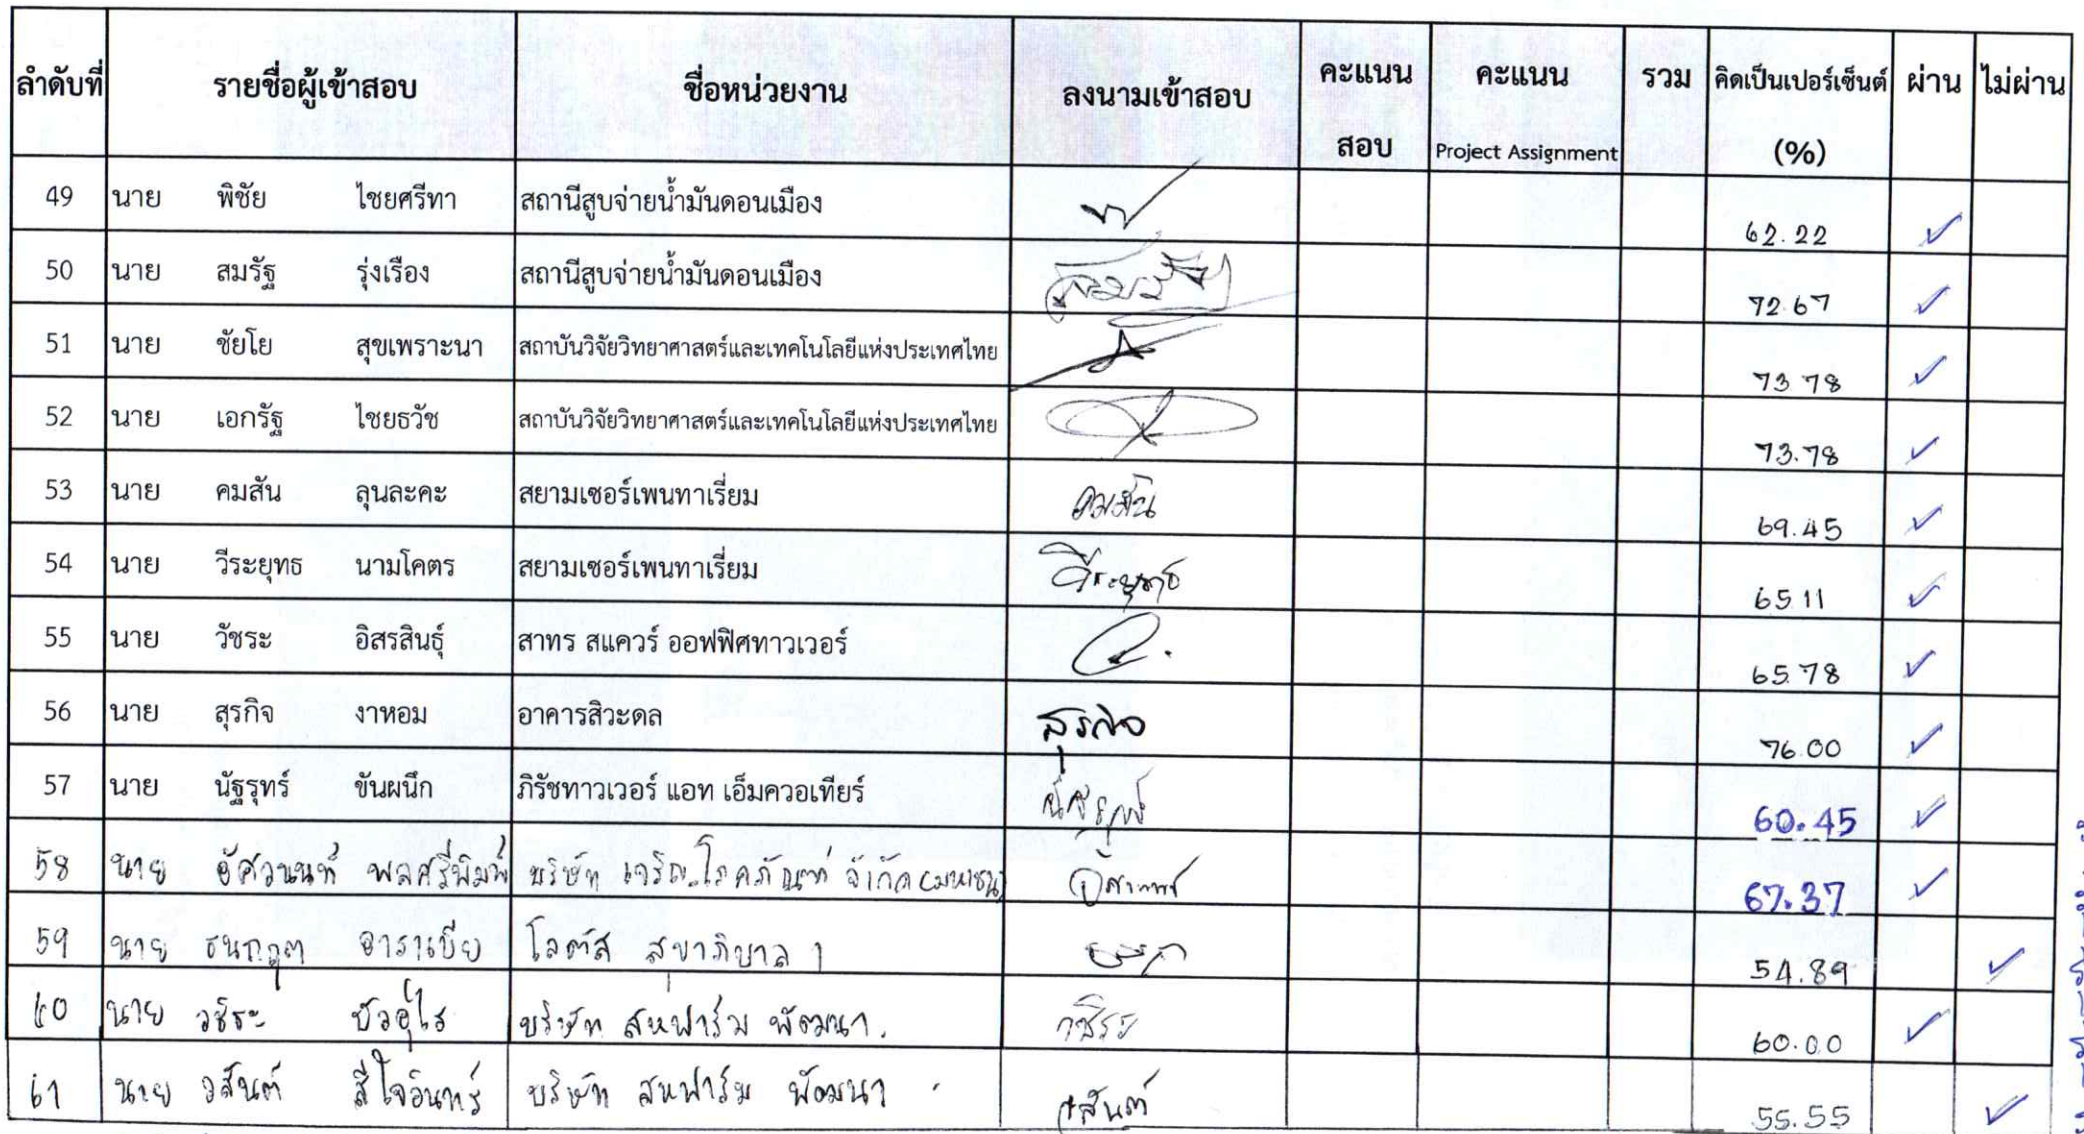 ลำดับที่ รายชื่อผู้เข้าสอบ ชื่อหน่วยงาน ลงนามเข้าสอบ คะแนน คะแนน รวม คิดเป็นเปอร์เซ็นต์ ผ่าน ไม่ผ่าน
สอบ Project Assignment (%)
49 นาย พิชัย ไชยศรีทา สถานีสูบจ่ายน้ำมันดอนเมือง 62.22 ✓
50 นาย สมรัฐ รุ่งเรือง สถานีสูบจ่ายน้ำมันดอนเมือง 72.67 ✓
51 นาย ชัยโย สุขเพราะนา สถาบันวิจัยวิทยาศาสตร์และเทคโนโลยีแห่งประเทศไทย 73.78 ✓
52 นาย เอกรัฐ ไชยธวัช สถาบันวิจัยวิทยาศาสตร์และเทคโนโลยีแห่งประเทศไทย 73.78 ✓
53 นาย คมสัน ลุนละคะ สยามเซอร์เพนทาเรี่ยม คมสัน 69.45 ✓
54 นาย วีระยุทธ นามโคตร สยามเซอร์เพนทาเรี่ยม วีระยุทธ 65.11 ✓
55 นาย วัชระ อิสรสินธุ์ สาทร สแควร์ ออฟฟิศทาวเวอร์ 65.78 ✓
56 นาย สุรกิจ งาหอม อาคารสิวะดล สุรกิจ 76.00 ✓
57 นาย นัฐรุทร์ ขันผนึก ภิรัชทาวเวอร์ แอท เอ็มควอเทียร์ 60.45 ✓
58 นาย อัศวนนท์ พลศรีพิมพ์ บริษัท เจริญโภคภัณฑ์ จำกัด (มหาชน) 67.37 ✓
59 นาย ธนกฤต อาราเบีย โลตัส สุขาภิบาล 1 54.89 ✓
60 นาย วชิระ บัวอุไร บริษัท สหฟาร์ม พัฒนา. วชิระ 60.00 ✓
61 นาย วสันต์ สีใจอินทร์ บริษัท สหฟาร์ม พัฒนา วสันต์ 55.55 ✓